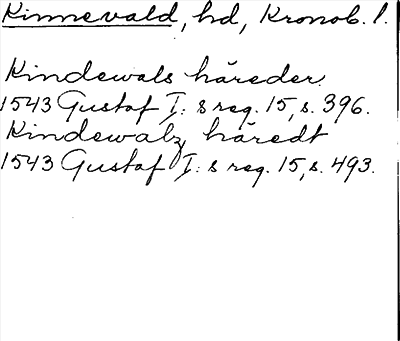 Kinnevald, hd, Kronob. l.
Kindewals häreder
1543 Gustaf I:s reg. 15, s. 396.
Kindewalz häredt
1543 Gustaf I:s reg. 15, s. 493.